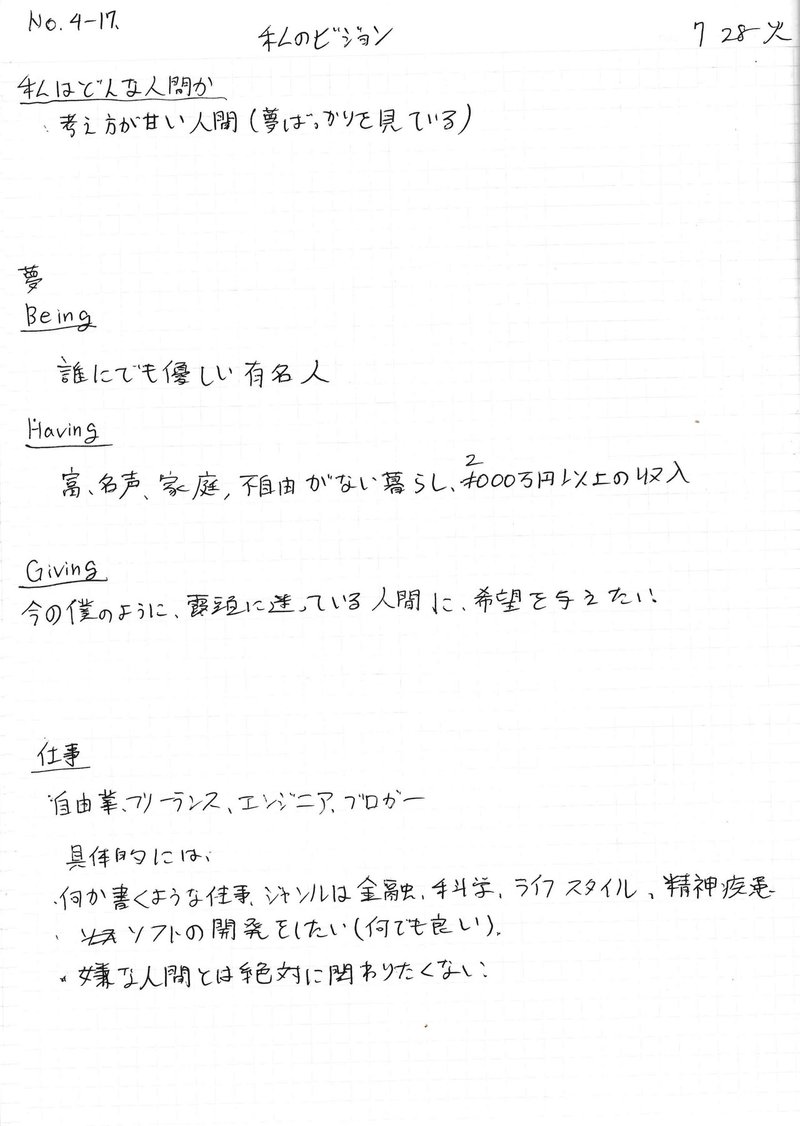 No. 4-17.
私のビジョン
7 28 火
私はどんな人間か
・考え方が甘い人間(夢ばっかりを見ている)
夢
Being
誰にでも優しい有名人
Having
富、名声、家庭、不自由がない暮らし、2000万円以上の収入
Giving
今の僕のように、露頭に迷っている人間に、希望を与えたい。
仕事
自由業、フリーランス、エンジニア、ブロガー
具体的には、
・何か書くような仕事、ジャンルは金融、科学、ライフスタイル、精神疾患
・ソフトの開発をしたい(何でも良い)。
・嫌な人間とは絶対に関わりたくない。